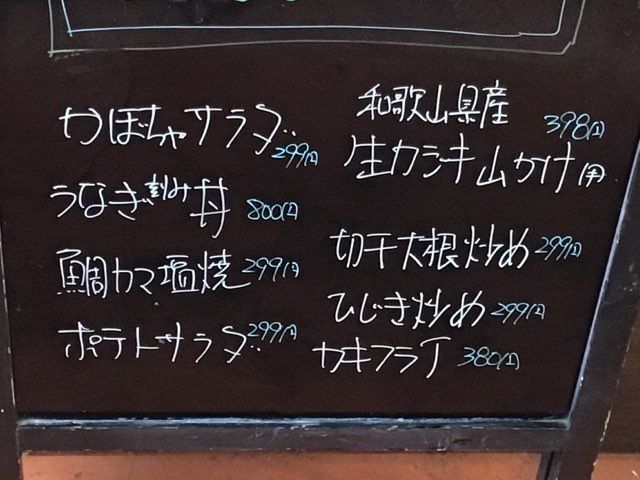 かぼちゃサラダ 299円
うなぎ刻み丼 800円
鯛カマ塩焼 299円
ポテトサラダ 299円
和歌山県産
生カジキ山かけ用 398円
切干大根炒め 299円
ひじき炒め 299円
カキフライ 380円